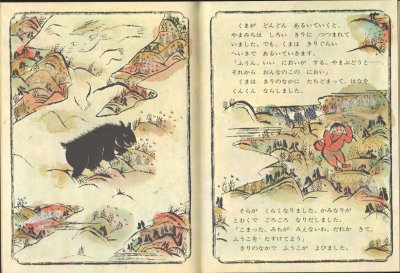 くまが どんどん あるいていくと、
やまみちは しろい きりに つつまれて
いました。でも、くまは きりぐらい
へいきで あるいていきます。
「ふうん、いい においが する。やまぶどうと……
それから おんなのこの におい」
くまは きりのなかに たちどまって、はなを
くんくん ならしました。
そらが くらくなりました。かみなりが
とおくで ごろごろ なりだしました。
「こまった。みちが みえないわ。だれか きて、
ふうこを たすけてよう」
きりのなかで ふうこが よびました。